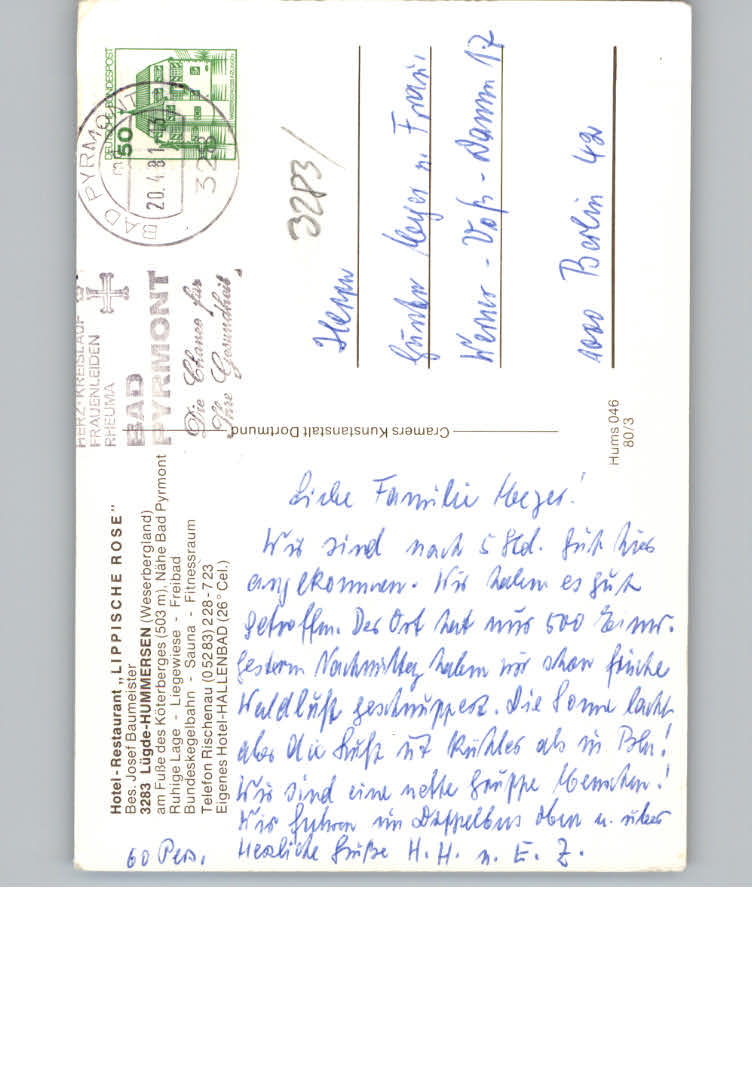 Hotel-Restaurant „LIPPISCHE ROSE"
Bes. Josef Baumeister
3283 Lügde-HUMMERSEN (Weserbergland)
am Fuße des Köterberges (503 m), Nähe Bad Pyrmont
Ruhige Lage - Liegewiese - Freibad
Bundeskegelbahn - Sauna - Fitnessraum
Telefon Rischenau (05283) 228-723
Eigenes Hotel-HALLENBAD (26° Cel.)
Liebe Familie Meyer!
Wir sind nach 5 Std. gut hier
angekommen. Wir haben es gut
getroffen. Der Ort hat nur 500 Einw.
Gestern Nachmittag haben wir schon frische
Waldluft geschnuppert. Die Sonne lacht
aber die Luft ist kühler als in Bln!
Wir sind eine nette Gruppe Menschen!
Wir fuhren im Doppelbus oben u. unten
60 Pers.
Herzliche Grüße H. H. u. E. Z.
Cramers Kunstanstalt Dortmund
Hums 046
80/3
HERZ-KREISLAUF
FRAUENLEIDEN
RHEUMA
BAD
PYRMONT
Die Chance für
Ihre Gesundheit
BAD PYRMONT
20.4.81
328
DEUTSCHE BUNDESPOST
50
3283/
Herrn
Günter Meyer u. Frau
Werner-Voß-Damm 17
1000 Berlin 42